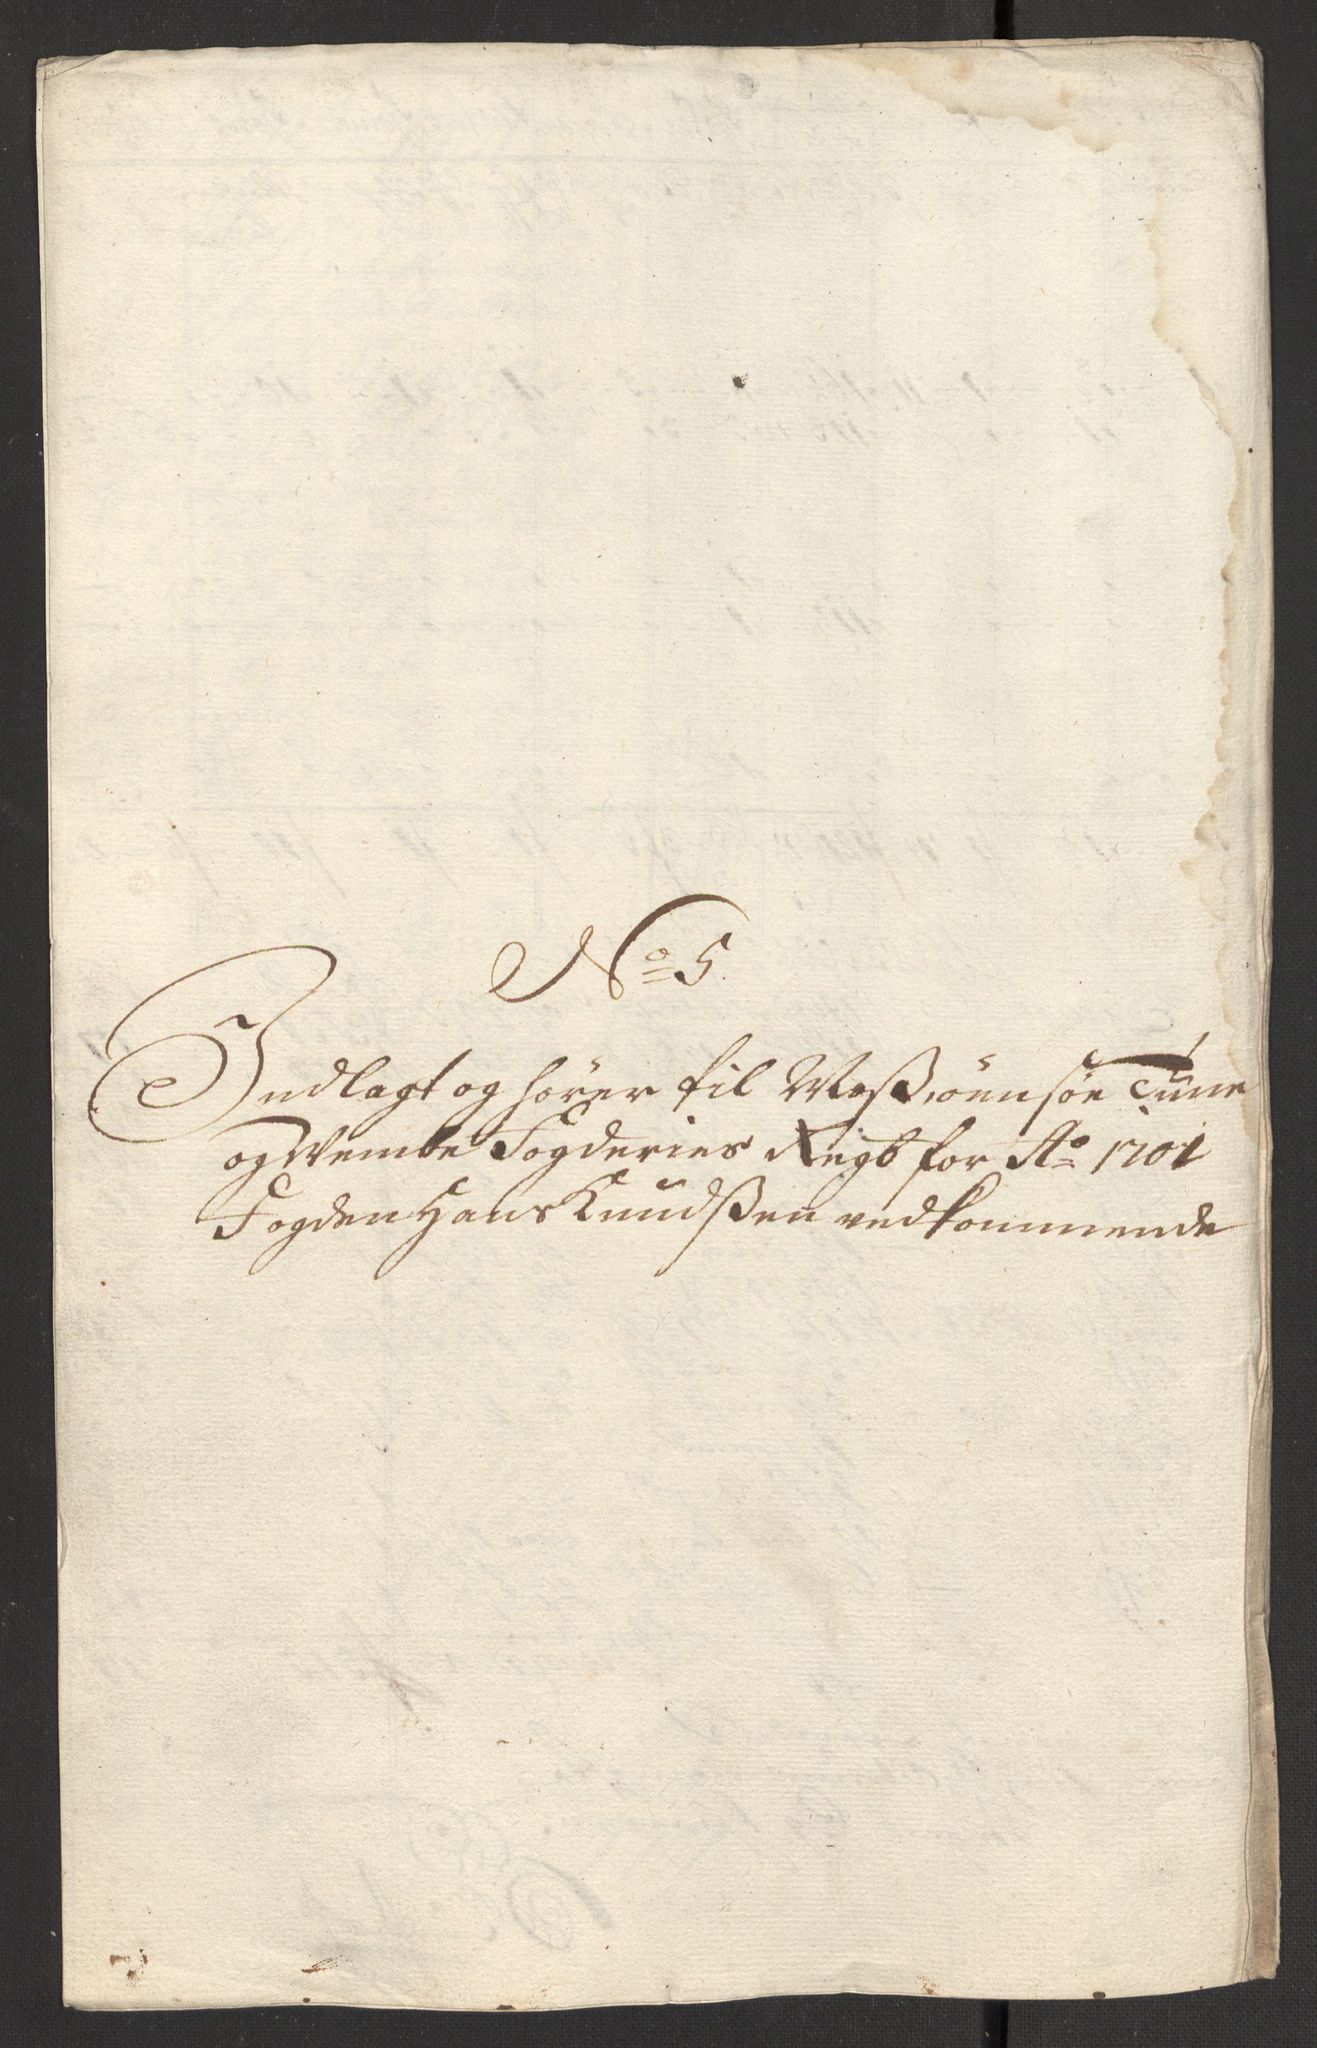 No 5
Indlagt og hörer til Moss, önensöe Tune
og Wembe Fogderies Regb for Ao 1701
Fogden Hans Knudssen vedkommende